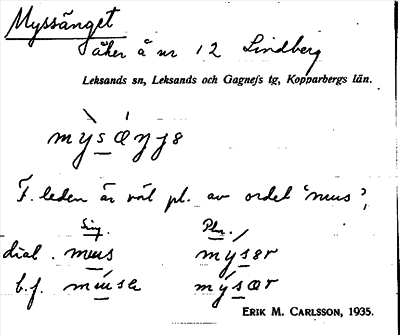 Myssänget
åker å nr 12 Lindberg
Leksands sn, Leksands och Gagnefs tg, Kopparbergs län.
F. leden är väl pl. av ordet "mus",
Sing. Plur.
dial. mus mýser
b.f. musa mýsær
ERIK M. CARLSSON, 1935.